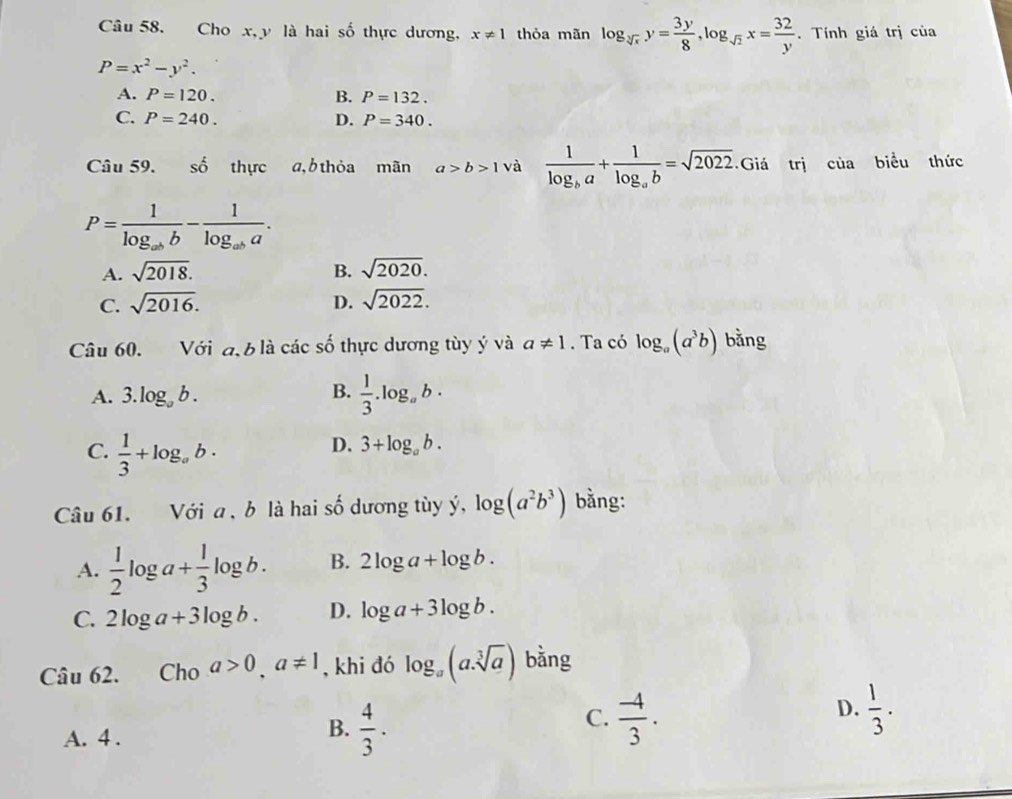 Câu 58. Cho x, y là hai số thực dương, x ≠ 1 thỏa mãn log_{∛x} y = 3y/8, log_{√2} x = 32/y. Tính giá trị của
P = x² − y².
A. P = 120. B. P = 132.
C. P = 240. D. P = 340.
Câu 59. số thực a, b thỏa mãn a > b > 1 và 1/log_b a + 1/log_a b = √2022. Giá trị của biểu thức
P = 1/log_{ab} b − 1/log_{ab} a.
A. √2018. B. √2020.
C. √2016. D. √2022.
Câu 60. Với a, b là các số thực dương tùy ý và a ≠ 1. Ta có log_a (a³b) bằng
A. 3.log_a b. B. 1/3.log_a b.
C. 1/3 + log_a b. D. 3 + log_a b.
Câu 61. Với a, b là hai số dương tùy ý, log(a²b³) bằng:
A. 1/2 log a + 1/3 log b. B. 2 log a + log b.
C. 2 log a + 3 log b. D. log a + 3 log b.
Câu 62. Cho a > 0, a ≠ 1, khi đó log_a (a.∛a) bằng
A. 4. B. 4/3. C. −4/3. D. 1/3.